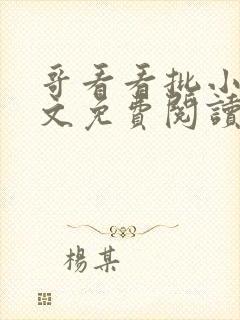 哥看看批小
文免費閱讀
楊某